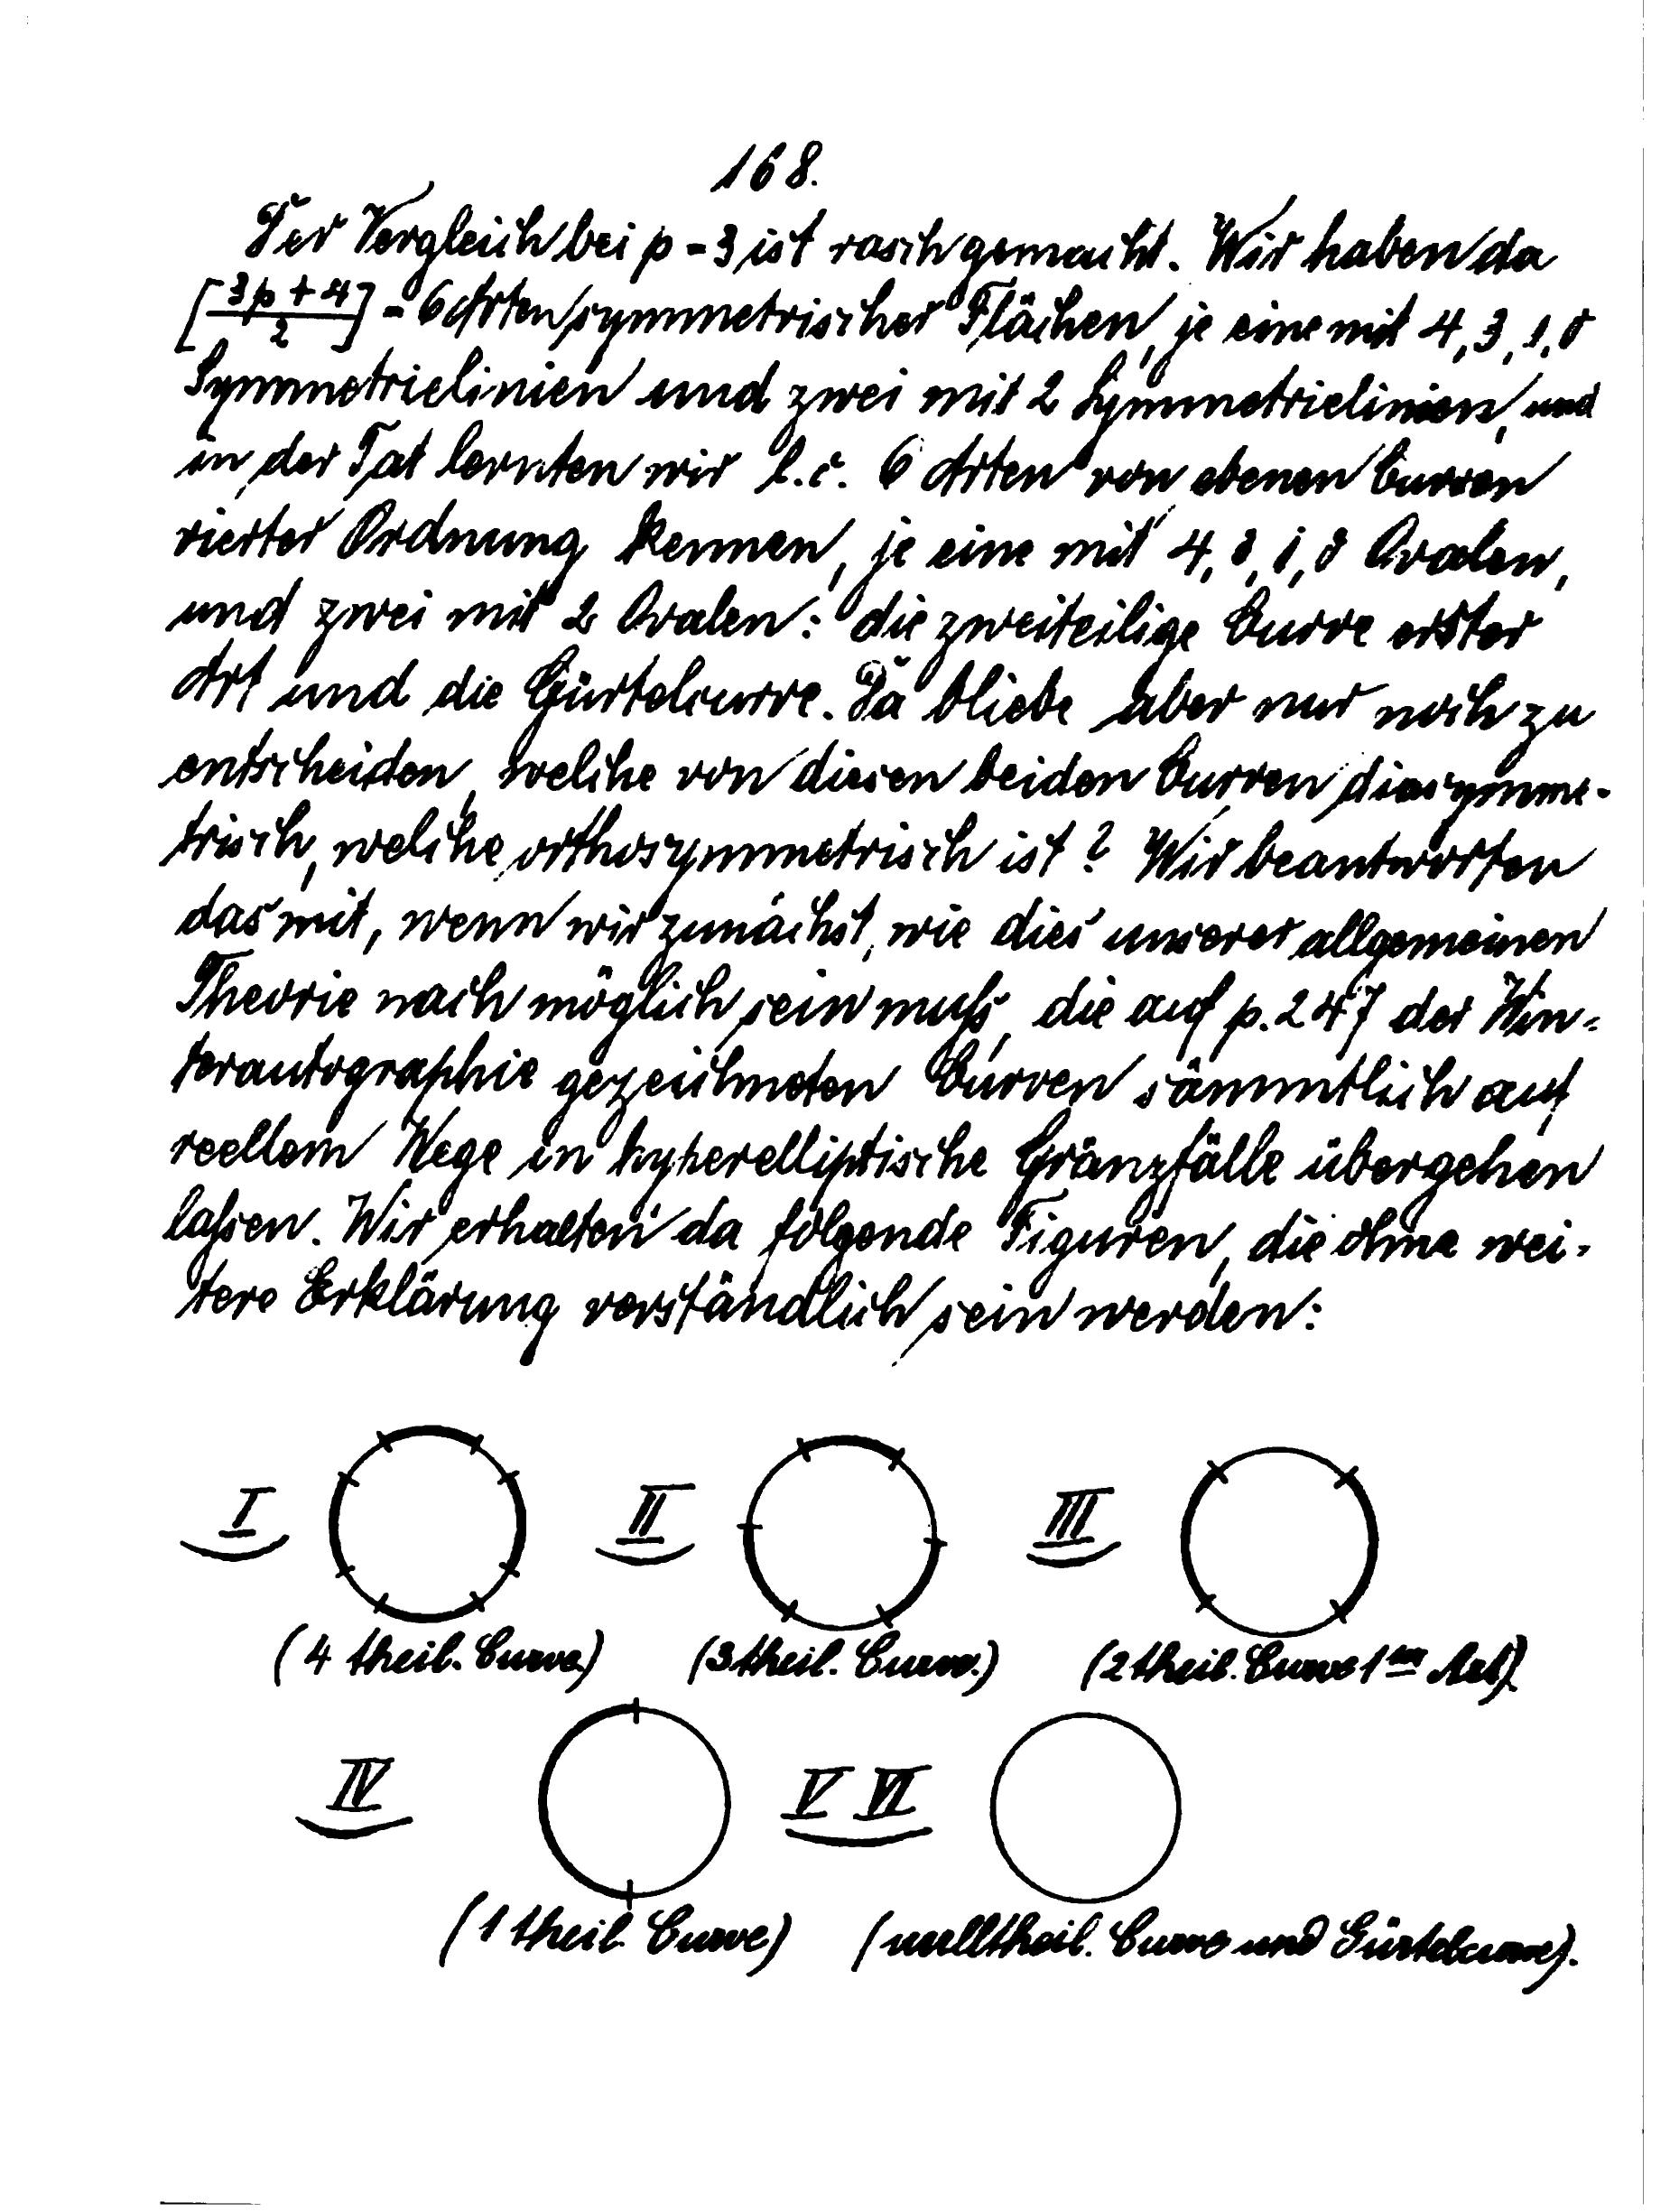 168.
Der Vergleich bei p = 3 ist rasch gemacht. Wir haben da
[(3p + 4)/2] = 6 Arten symmetrischer Flächen, je eine mit 4, 3, 1, 0
Symmetrielinien und zwei mit 2 Symmetrielinien, und
in der Tat lernten wir l. c. 6 Arten von ebenen Curven
vierter Ordnung kennen, je eine mit 4, 3, 1, 0 Ovalen,
und zwei mit 2 Ovalen: die zweiteilige Curve erster
Art und die Gürtelcurve. Da bliebe aber nur noch zu
entscheiden, welche von diesen beiden Curven diasymme-
trisch, welche orthosymmetrisch ist? Wir beantworten
das mit, wenn wir zunächst, wie dies unserer allgemeinen
Theorie nach möglich sein muß, die auf p. 247 der Win-
terautographie gezeichneten Curven sämmtlich auf
reellem Wege in hyperelliptische Gränzfälle übergehen
laßen. Wir erhalten da folgende Figuren, die ohne wei-
tere Erklärung verständlich sein werden:
I II III
(4 theil. Curve) (3 theil. Curve.) (2 theil. Curve 1ter Art)
IV V VI
(1 theil. Curve) (nulltheil. Curve und Gürtelcurve).